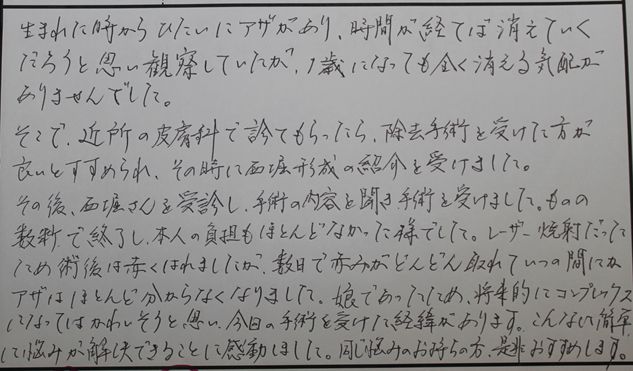 生まれた時からひたいにアザがあり、時間が経てば消えていく
だろうと思い観察していたが、1歳になっても全く消える気配が
ありませんでした。
そこで、近所の皮膚科で診てもらったら、除去手術を受けた方が
良いとすすめられ、その時に西堀形成の紹介を受けました。
その後、西堀さんを受診し、手術の内容を聞き手術を受けました。ものの
数秒で終了し、本人の負担もほとんどなかった様でした。レーザー焼射だった
ため術後は赤くはれましたが、数日で赤みがどんどん取れていつの間にか
アザはほとんど分からなくなりました。娘であったため、将来的にコンプレックス
になってはかわいそうと思い、今回の手術を受けた経緯があります。こんなに簡単
に悩みが解決できることに感動しました。同じ悩みのお持ちの方、是非おすすめします。